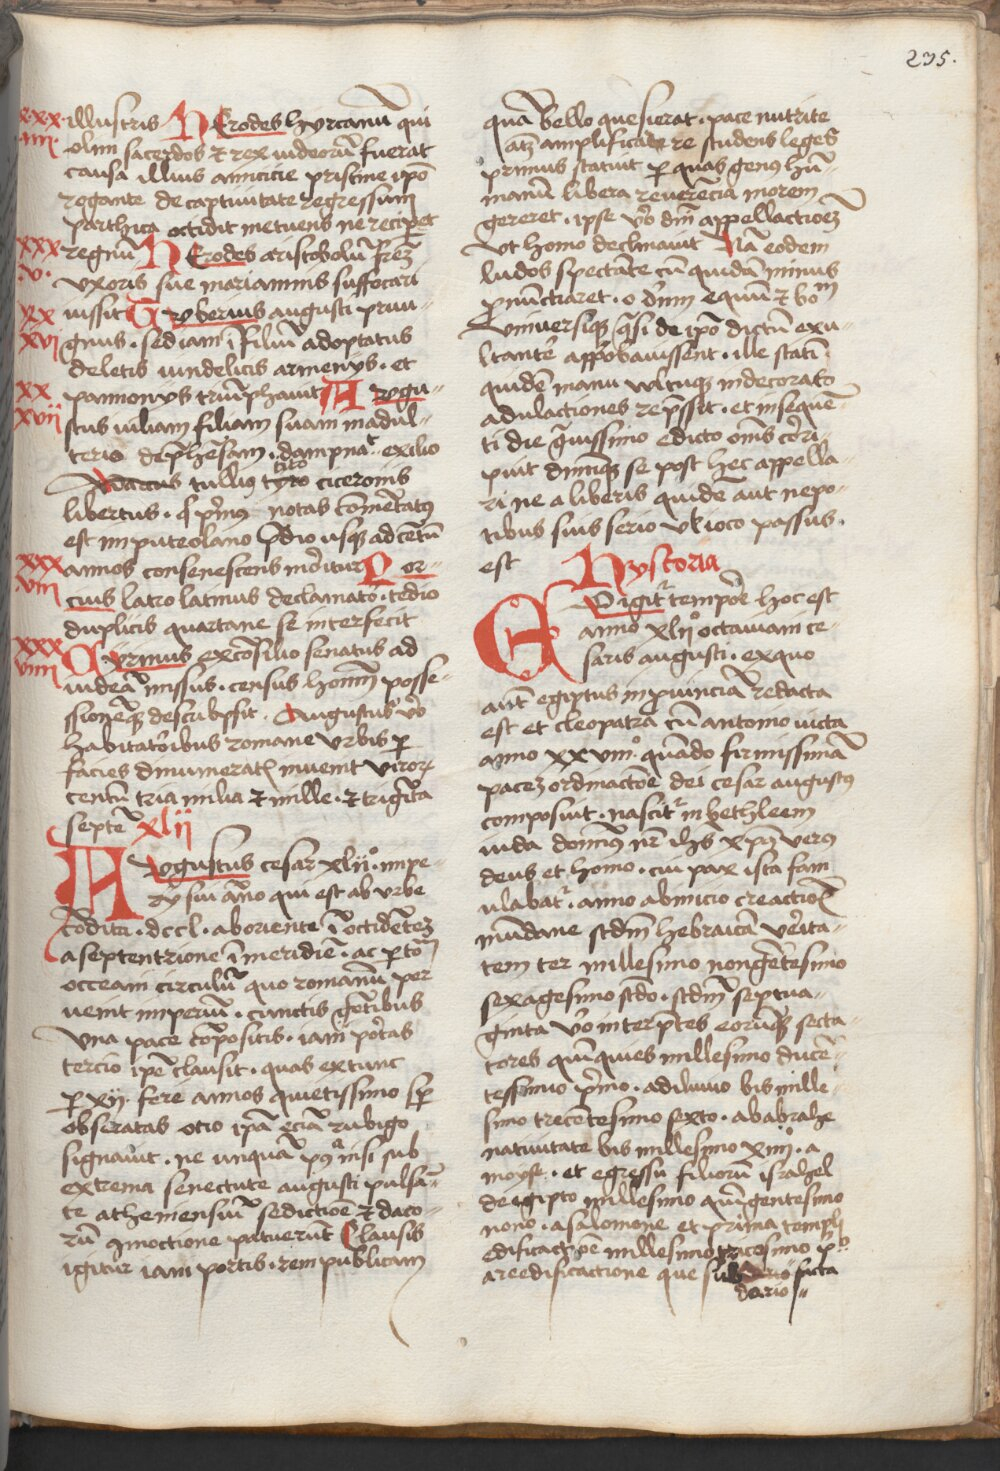 235.
xxx illustris Herodes hyrcanũ qui
iiii olim sacerdos et rex iudeorũ fuerat
causa illius amicicie pristine ipõ
rogante de captiuitate regressum
parthica occidit metuens ne recipet
xxx regnũ Herodes aristobolũ frẽz
v. vxoris sue mariamnis suffocari
xx iussit Tyberius augusti priui-
xvi gnus. sed iam ĩ filiũ adoptatus
deletis vindelicis armenijs. et
xx pannonijs triũphauit Augu-
xvii stus iuliam filiam suam in adul-
terio dep̃hẽsam. dampnat exilio
Marcus tullius tyro ciceronis
libertus. q̃ pr̃mus notas comẽtatus
est in puteolano p̃dio usqz ad centũ
xxx annos consenescens moritur Por-
viii cius latro latinus declamator tedio
duplicis quartane se interfecit
xxx Cyrinus ex cõsilio senatus ad
viiii iudeã missus. census hominũ posse-
ssionẽqz descripssit. Augustus vº
habitatoribus romane vrbis p
facies dinumeratis inuenit viror
centũ tria milia et mille. et trigĩta
septẽ xlij
Augustus cesar xlij.º impe-
rij sui anno qui est ab vrbe
condita. dccl. ab oriente ĩ occidẽtez
a septentrione ĩ meridiẽ. ac p totũ
occeani circulũ quo romanũ per
uenit imperiũ. cunctis gẽtibus
vna pace cõpositis. iani portas
tercio ipẽ clausit. quas ex tunc
p xij. fere annos quietissimo sp
obseratas otio ipã eciã rubigo
signauit. ne unquã pº nisi sub
extrema senectute augusti pulsã-
te atheniensiũ sedictioẽ et daco-
rũ cõmoctione patuerũt Clausis
igitur iam portis. rem publicam
quã bello quesierat. pace nutrire
atz amplificare studens leges
primus statuit p quas genus hũ-
manũ libera reuerẽcia morem
gereret. ipse vº dnĩ appellactioez
vt homo declinauit Nã eodem
ludos spectãte cũ quidã mimus
pnũctiaret. o dñm equũ et bom
Vniuersiqz q̃si de ipõ dictũ exu-
ltantes app̃obauissent. ille statĩ.
quidẽ manu vultuqz indecoras
adulactiones rep̃ssit. et insequẽ-
ti die grauissimo edicto om̃s cori-
puit dnũqz se post hec appella-
ri ne a liberis quidẽ aut nepo-
tibus suis serio vl ioco passus.
est Hystoria
Igitur tempore hoc est
anno xlijº octauiani ce-
saris augusti. ex quo
autẽ egiptus in puinciã redacta
est et cleopatra cũ antonio victa
anno xxviiiº. quãdo firmissimã
pacez ordinactoẽ dei cesar augustus
composuit. nascitr in bethleem
iuda domĩus nr̃ ihs xp̃us verus
deus et homo. cui pax ista fam
ulabatr. anno ab inicio creactiois
mũdane scdm hebraicã verita-
tem ter millesimo nongẽtesimo
sexagesimo scdo. scdm septua-
ginta vº interp̃tes eorũqz secta-
tores quĩquies millesimo ducẽ-
tessimo p̃mo. a diluuio bis mille
simo trecẽtesimo sexto. ab abrahe
natiuitate bis millesimo xiiiiº. a
moyse. et egressu filiorũ israhel
de egipto millesimo quĩgentesimo
nono. a salomone et prima templi
edificactoẽ millesimo tricesimo pº
a reedificactione que sub facta
dario